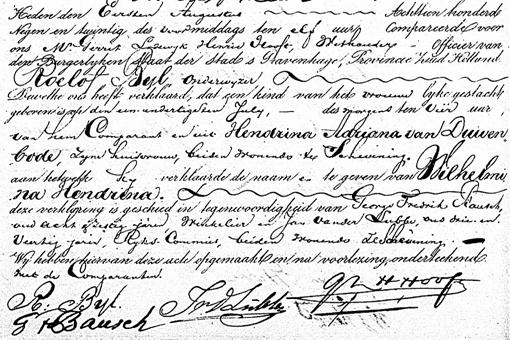 Heden den Eersten Augustus Achttien honderd
Negen en twintig des voormiddags ten elf uur, Compareerde voor
ons Mr Gerrit Lodewijk Hendrik Hooft, Wethouder, Officier van
den Burgerlyken Staat der Stad 's Gravenhage, Provincie Zuid Holland
Roelof Byl, Onderwijzer
Dewelke ons heeft verklaard, dat een kind van het vrouwelyke geslacht
geboren is op den een en dertigsten July, des morgens ten vier uur,
van hem Comparant en uit Hendrina Adriana van Duiven
bode, Zyne huisvrouw, beiden wonende te Scheveningen
aan hetwelk hy verklaarde de naam te geven van Wilhelmi
na Hendrina.
deze verklaring is geschied in tegenwoordigheid van George Fredrik Bausch,
oud acht jaren, Winkelier en Jan van der oud drie en
Veertig jaren, Ryks Commies, beiden wonende te Scheveningen,
Wij hebben hiervan deze acte opgemaakt en na voorlezing, onderteekend
met de Comparanten.
R. Byl. G L H Hooft
G F Bausch